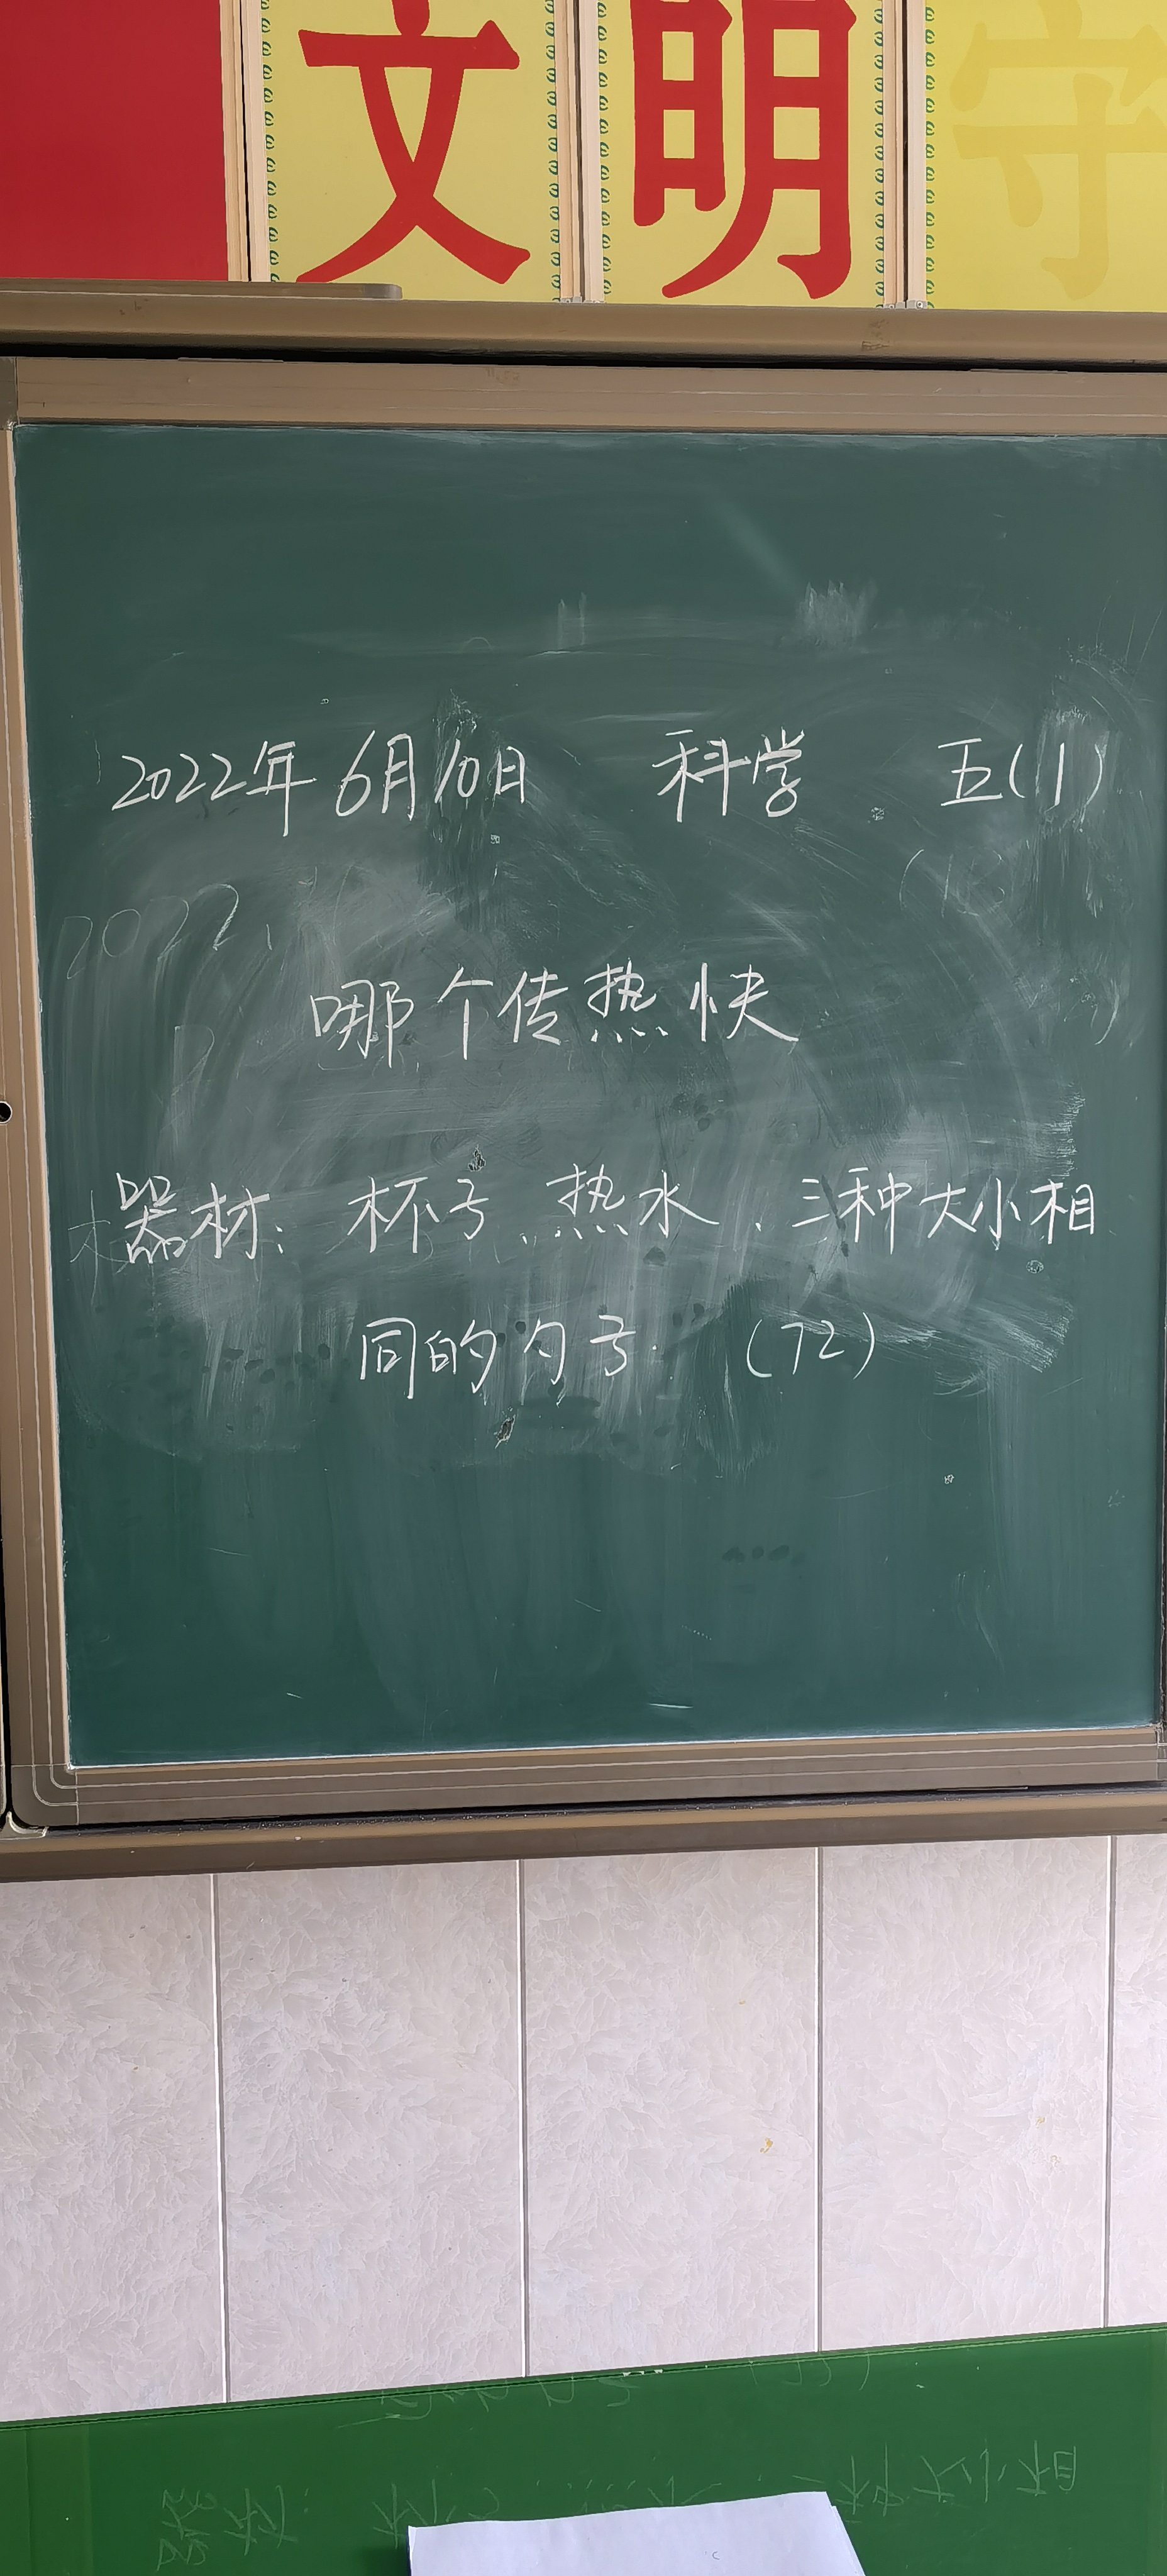 文明守
2022年6月10日 科学 五(1)
2022.
哪个传热快
器材: 杯子、热水、三种大小相
同的勺子. (72)